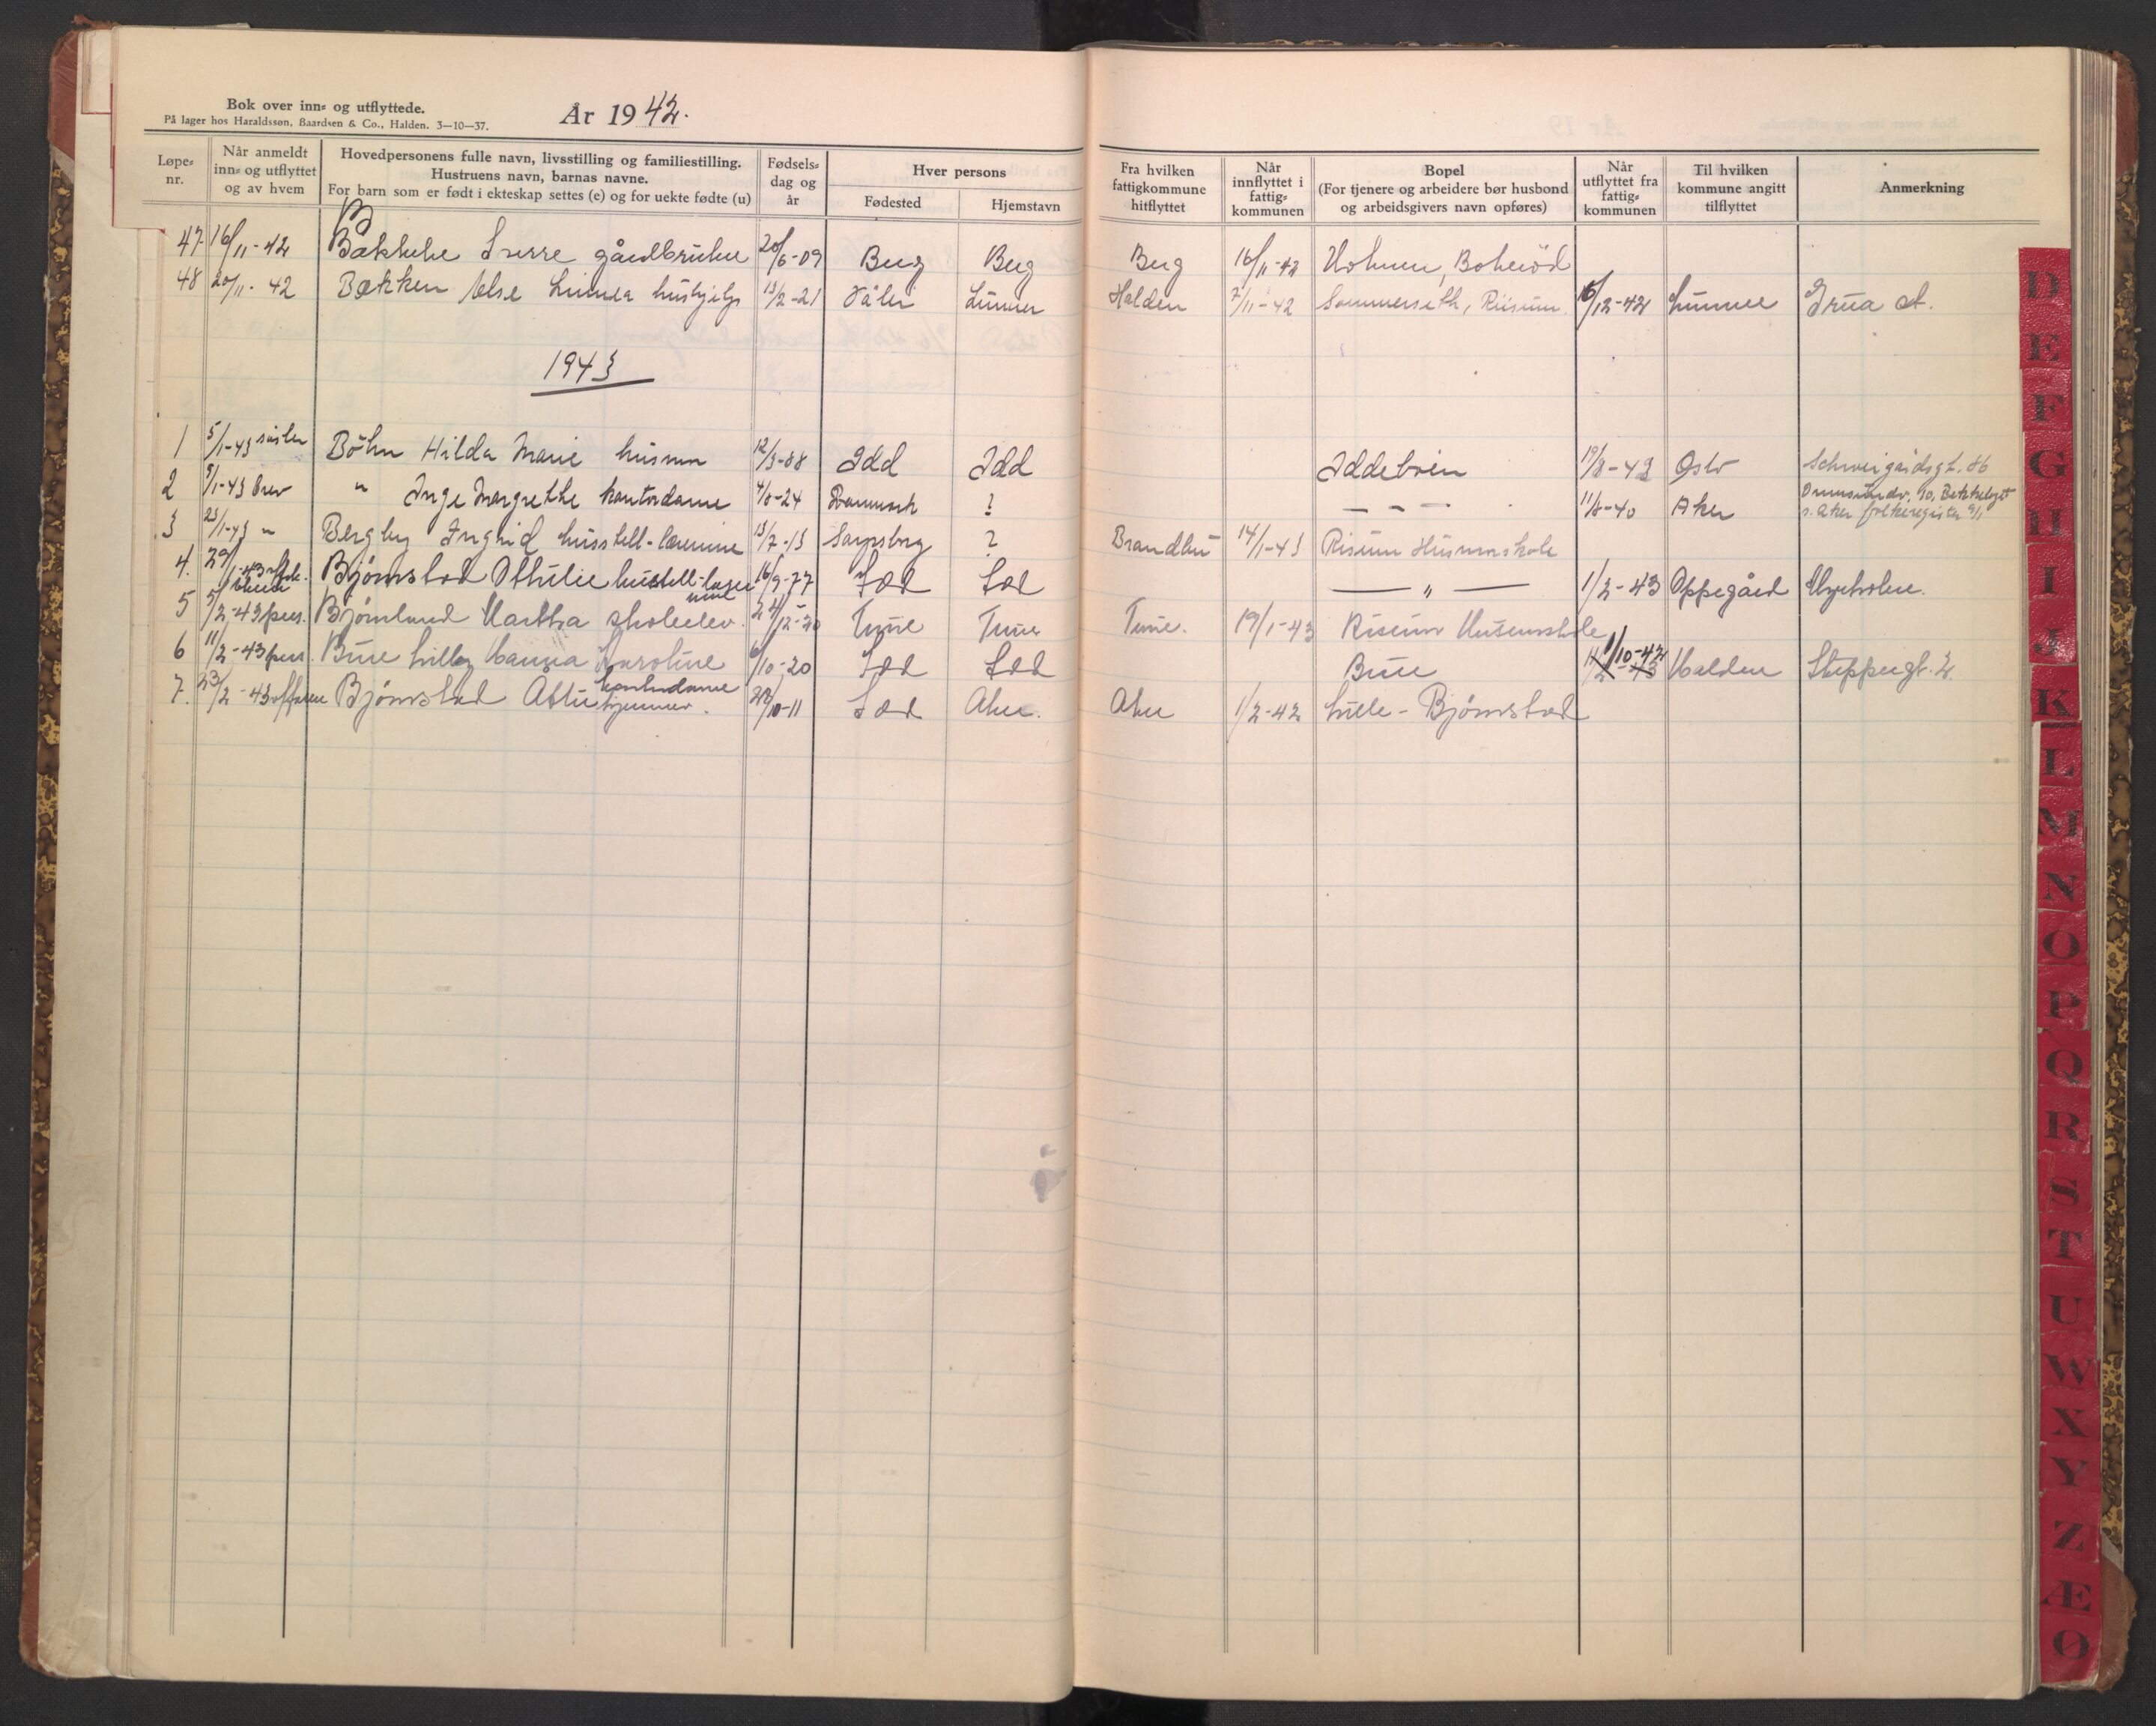 Bok over inn- og utflyttede.
På lager hos Haraldssøn, Baardsen & Co., Halden. 3—10—37.
År 1942.
Løpe-nr.
Når anmeldt inn- og utflyttet og av hvem
Hovedpersonens fulle navn, livsstilling og familiestilling.
Hustruens navn, barnas navne.
For barn som er født i ekteskap settes (e) og for uekte fødte (u)
Fødsels-dag og år
Hver persons
Fødested
Hjemstavn
Fra hvilken fattigkommune hitflyttet
Når innflyttet i fattig-kommunen
Bopel
(For tjenere og arbeidere bør husbond og arbeidsgivers navn opføres)
Når utflyttet fra fattig-kommunen
Til hvilken kommune angitt tilflyttet
Anmerkning
47. 16/11-42 Sverre gårdbruker 20/6-09 Berg Berg Berg 16/11-42 Holmen,
48 20/11-42 Bækken Else Linnea hushjelp 13/2-21 Våler Lunner Halden 7/11-42 Sommerseth, Riisum 15/12-42 Lunner Grua st.
1943
1 5/1-43 søster Böhn Hilda Marie husmor 12/3-88 Idd Idd Iddebøen 19/8-42 Oslo Schweigaardsgt. 86
2 9/1-43 brev " Inge Margrethe kontordame 4/8-24 Danmark ? — — — 11/8-40 Aker
s. Aker folkeregister 9/1
3 23/1-43 " Bergby Ingrid husstell-lærerinne 13/7-13 Sarpsborg ? Brandbu 14/1-43 Risum Husmorskole
4. 29/1-43 Bjørnstad Othilie husstell-lærerinne 16/9-77 Idd Idd — " — 1/2-43 Oppegård
5 5/2-43 pers. Bjørnland Martha skoleelev. Tune Tune Tune. 19/1-43 Risum Husmorskole
6 11/2-43 pers. Bue Lilly Hanna Karoline 6/10-20 Idd Idd Bue 11/2-43 1/10-42 Halden
7. 23/2-43 Bjørnstad kontordame 10-11 Idd Aker. Aker 1/2-42 Lille-Bjørnstad
D
E
F
G
H
I
J
K
L
M
N
O
P
Q
R
S
T
U
W
X
Y
Z
Æ
Ø